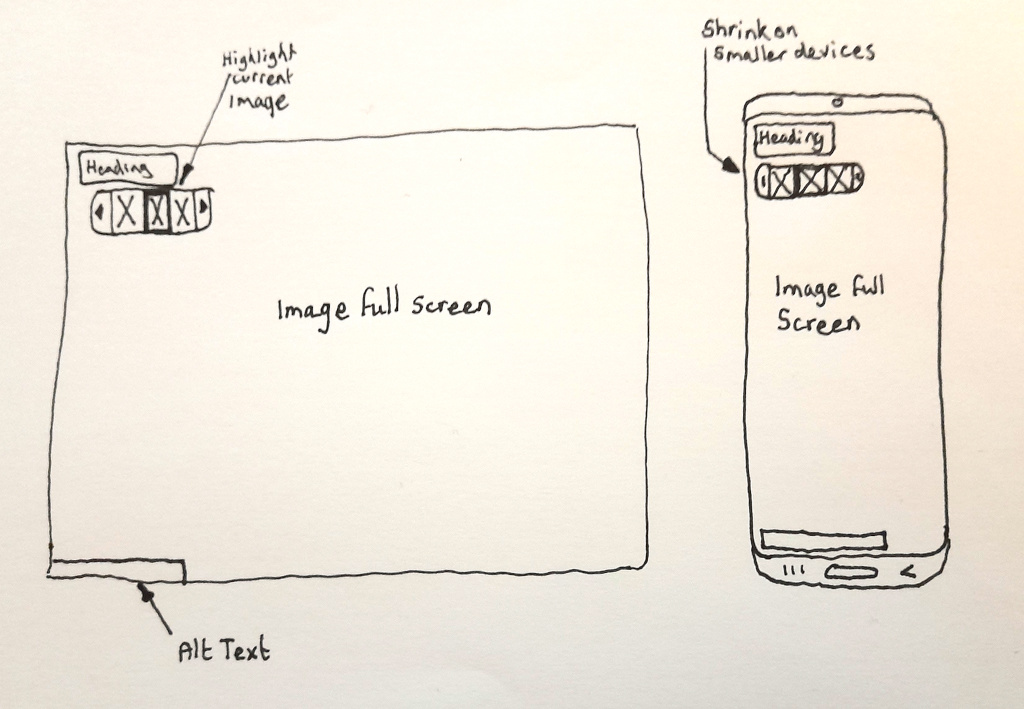 Highlight
current
Image
Heading
Image Full Screen
Alt Text
Shrink on
Smaller devices
Heading
Image Full
Screen